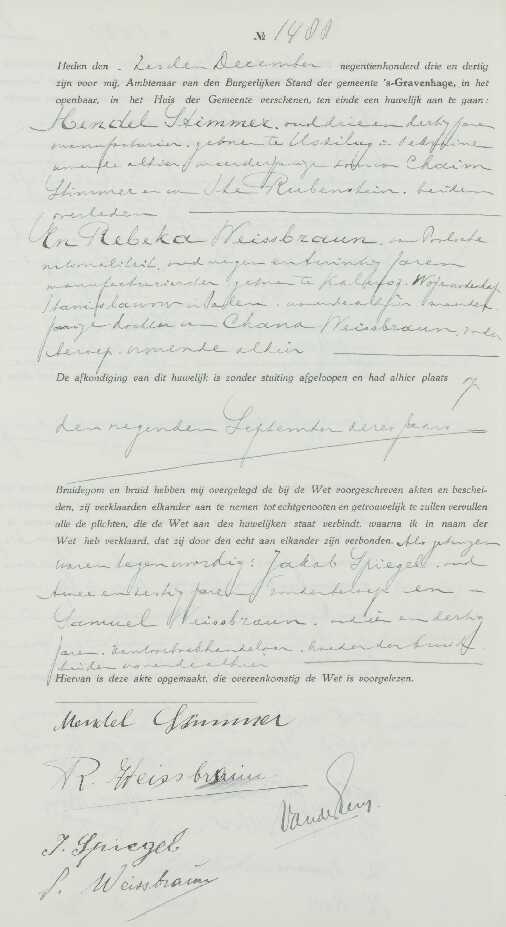 № 1488
Heden den zesden December negentienhonderd drie en dertig
zijn voor mij, Ambtenaar van den Burgerlijken Stand der gemeente 's-Gravenhage, in het
openbaar, in het Huis der Gemeente verschenen, ten einde een huwelijk aan te gaan:
Mendel Stimmer, oud drie en dertig jaren
manufacturier, geboren te Uscilug
wonende alhier, meerderjarige zoon van Chaim
Stimmer en van Ite Rubenstein, beiden
overleden
En Rebeka Weissbraun, van Poolsche
nationaliteit, oud negen en twintig jaren
geboren te Wojewodschap
Stanislawow in Polen, wonende alhier, meerder-
jarige dochter van Chana Weissbraun, zonder
beroep, wonende alhier
De afkondiging van dit huwelijk is zonder stuiting afgeloopen en had alhier plaats
den negenden September dezes jaars
Bruidegom en bruid hebben mij overgelegd de bij de Wet voorgeschreven akten en beschei-
den, zij verklaarden elkander aan te nemen tot echtgenooten en getrouwelijk te zullen vervullen
alle de plichten, die de Wet aan den huwelijken staat verbindt, waarna ik in naam der
Wet heb verklaard, dat zij door den echt aan elkander zijn verbonden. Als getuigen
waren tegenwoordig: Jakob Spiegel, oud
twee en dertig jaren, zonder beroep en
Samuel Weissbraun, oud en dertig
jaren, broeder der bruid,
beiden wonende alhier
Hiervan is deze akte opgemaakt, die overeenkomstig de Wet is voorgelezen.
Mendel Stimmer
R. Weissbraun
J. Spiegel
S. Weissbraun